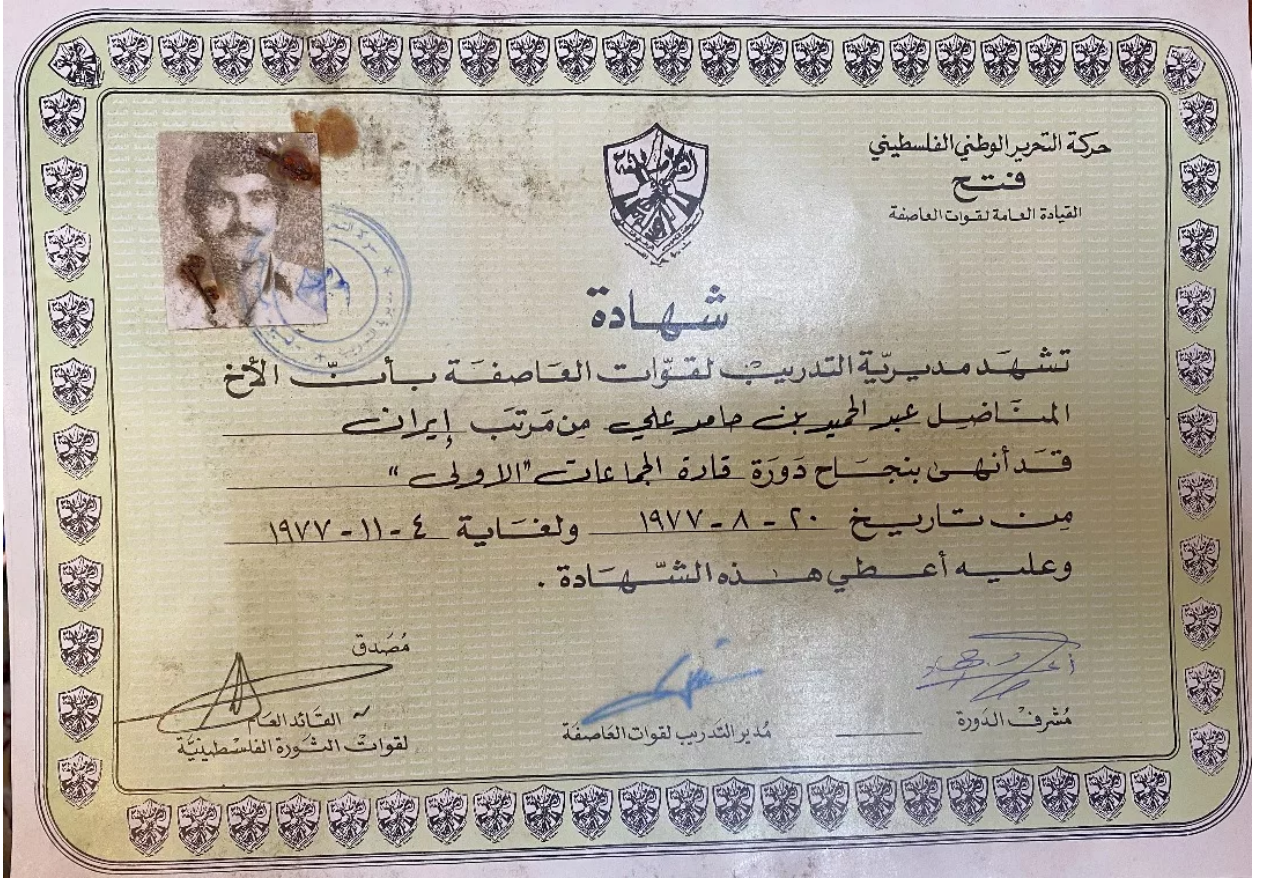 حركة التحرير الوطني الفلسطيني
فتح
القيادة العامة لقوات العاصفة
العاصفة
شهادة
تشهد مديرية التدريب لقوات العاصفة بأن الأخ
المناضل عبد الحميد بن حامد علي من مرتب إيران
قد أنهى بنجاح دورة قادة الجماعات "الاولى"
من تاريخ ٢٠ - ٨ - ١٩٧٧ ولغاية ٤ - ١١ - ١٩٧٧
وعليه أعطي هذه الشهادة .
مشرف الدورة
مُدير التدريب لقوات العاصفة
مُصَدق
القائد العام
لقوات الثورة الفلسطينية